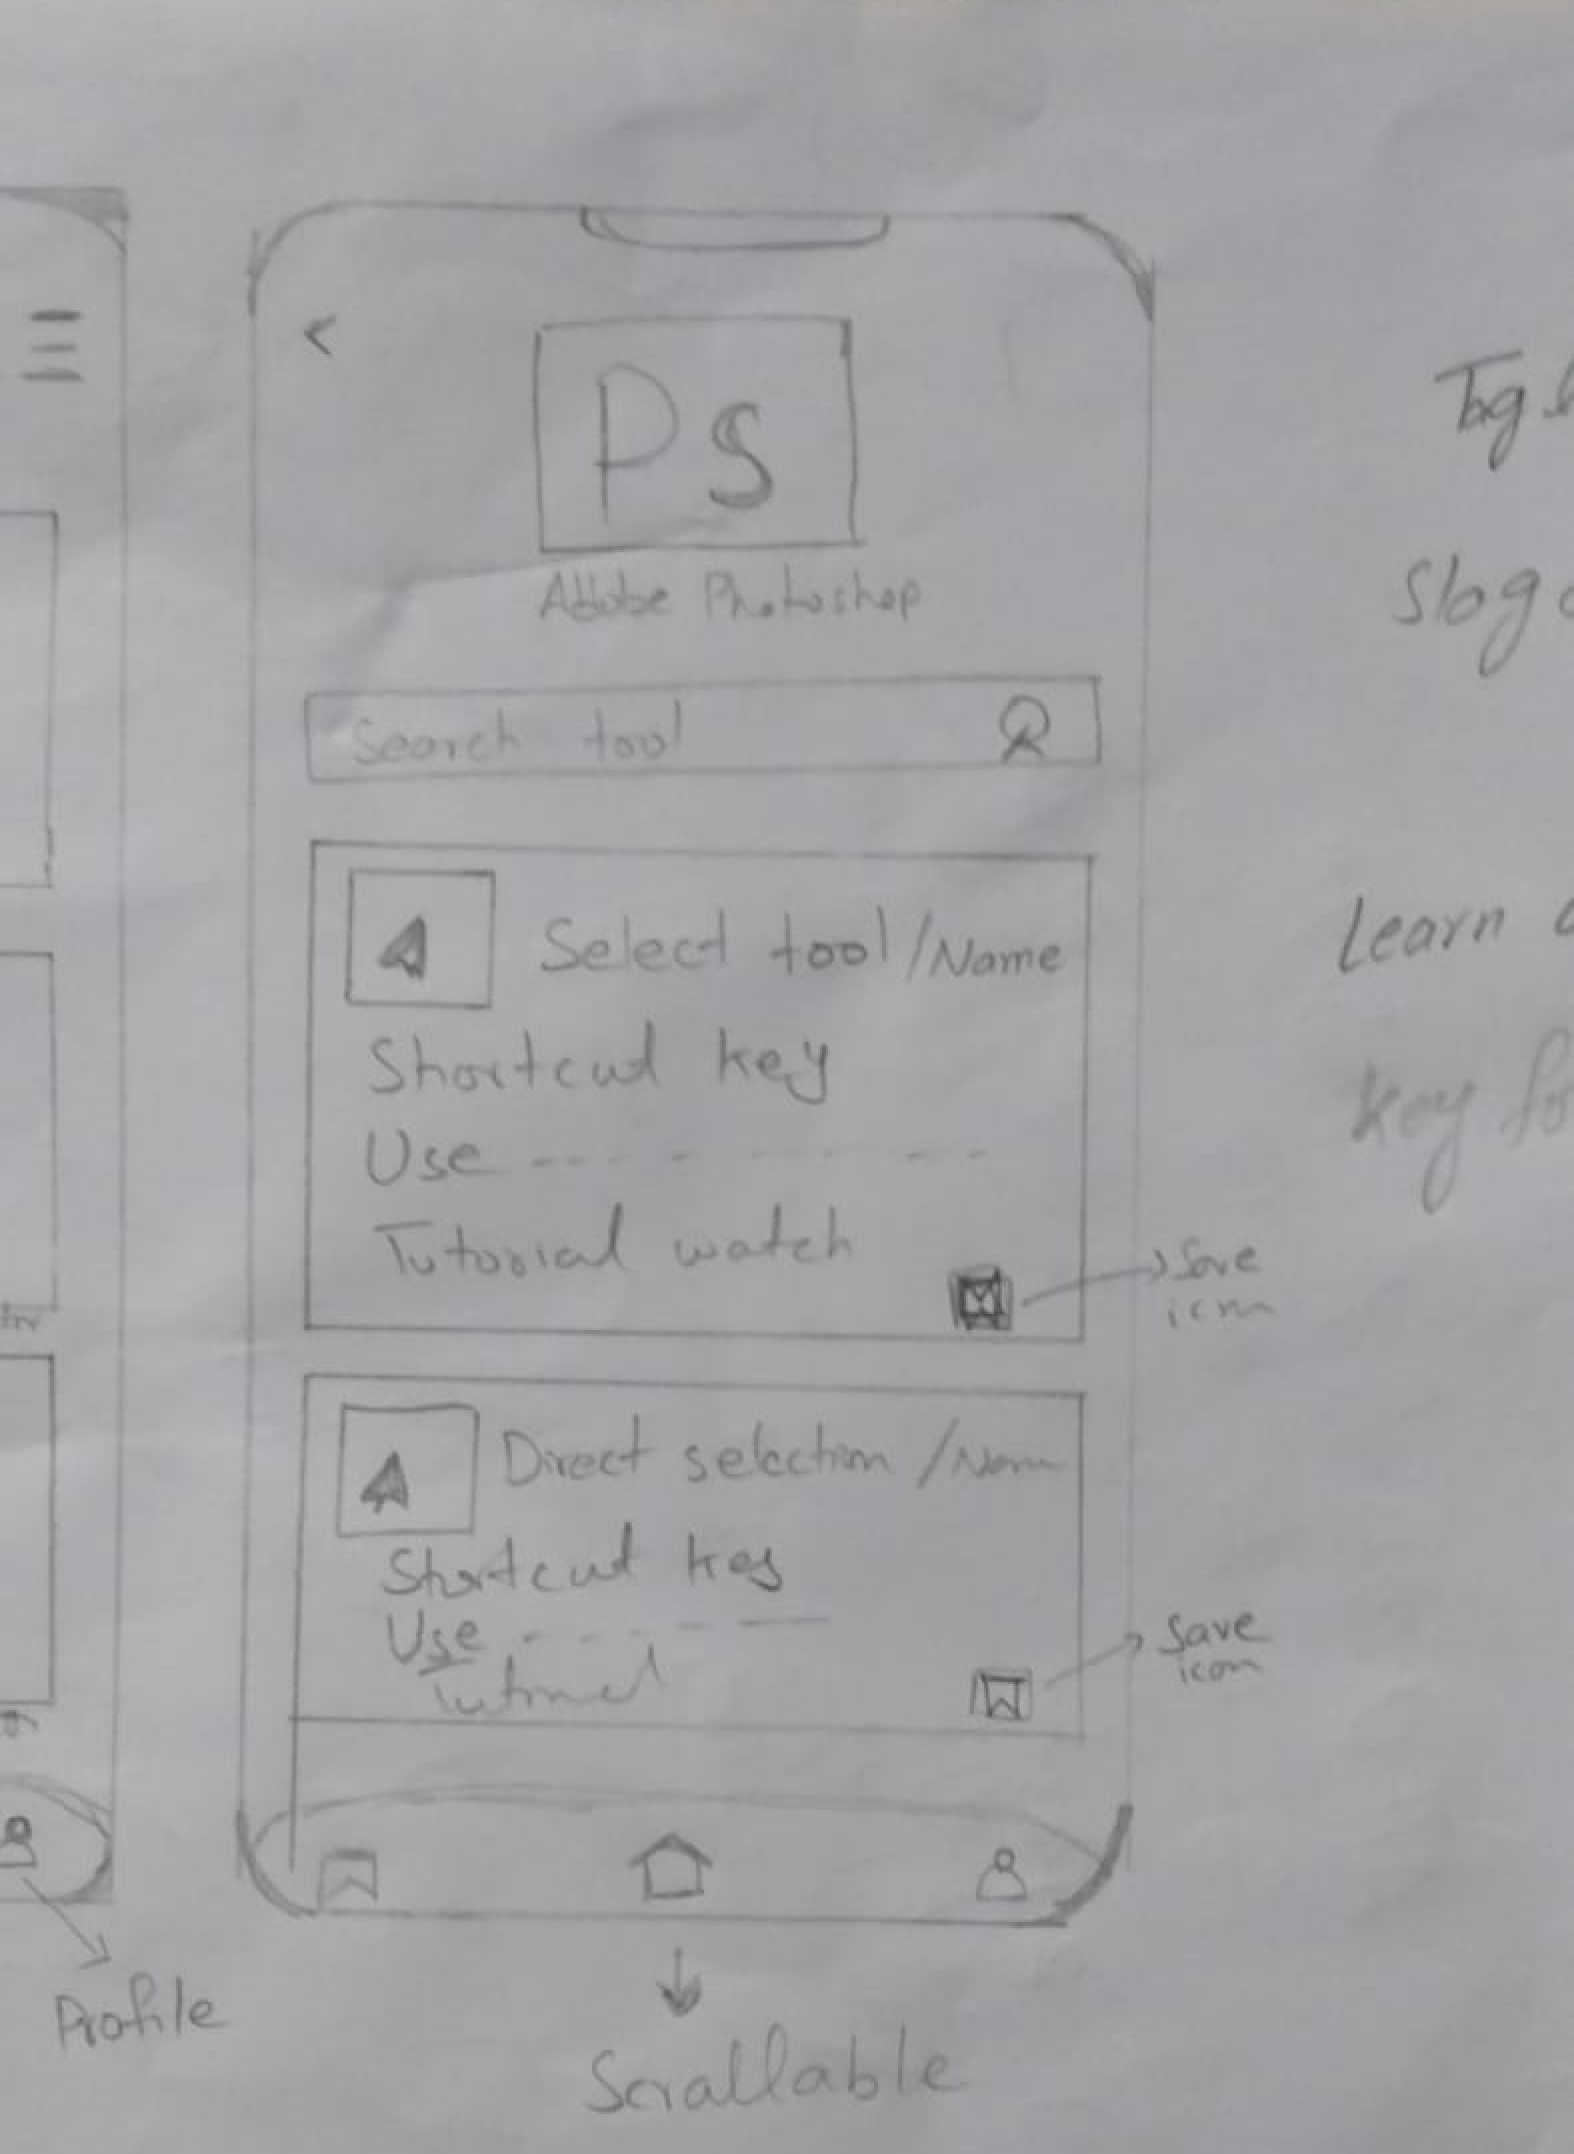 Ps
Adobe Photoshop
Search tool
Select tool/Name
Shortcut key
Use
Tutorial watch
Save
icon
Direct selection /Name
Shortcut key
Use
Save
icon
Profile
Scrallable
Tag
Slog
Learn
key fo